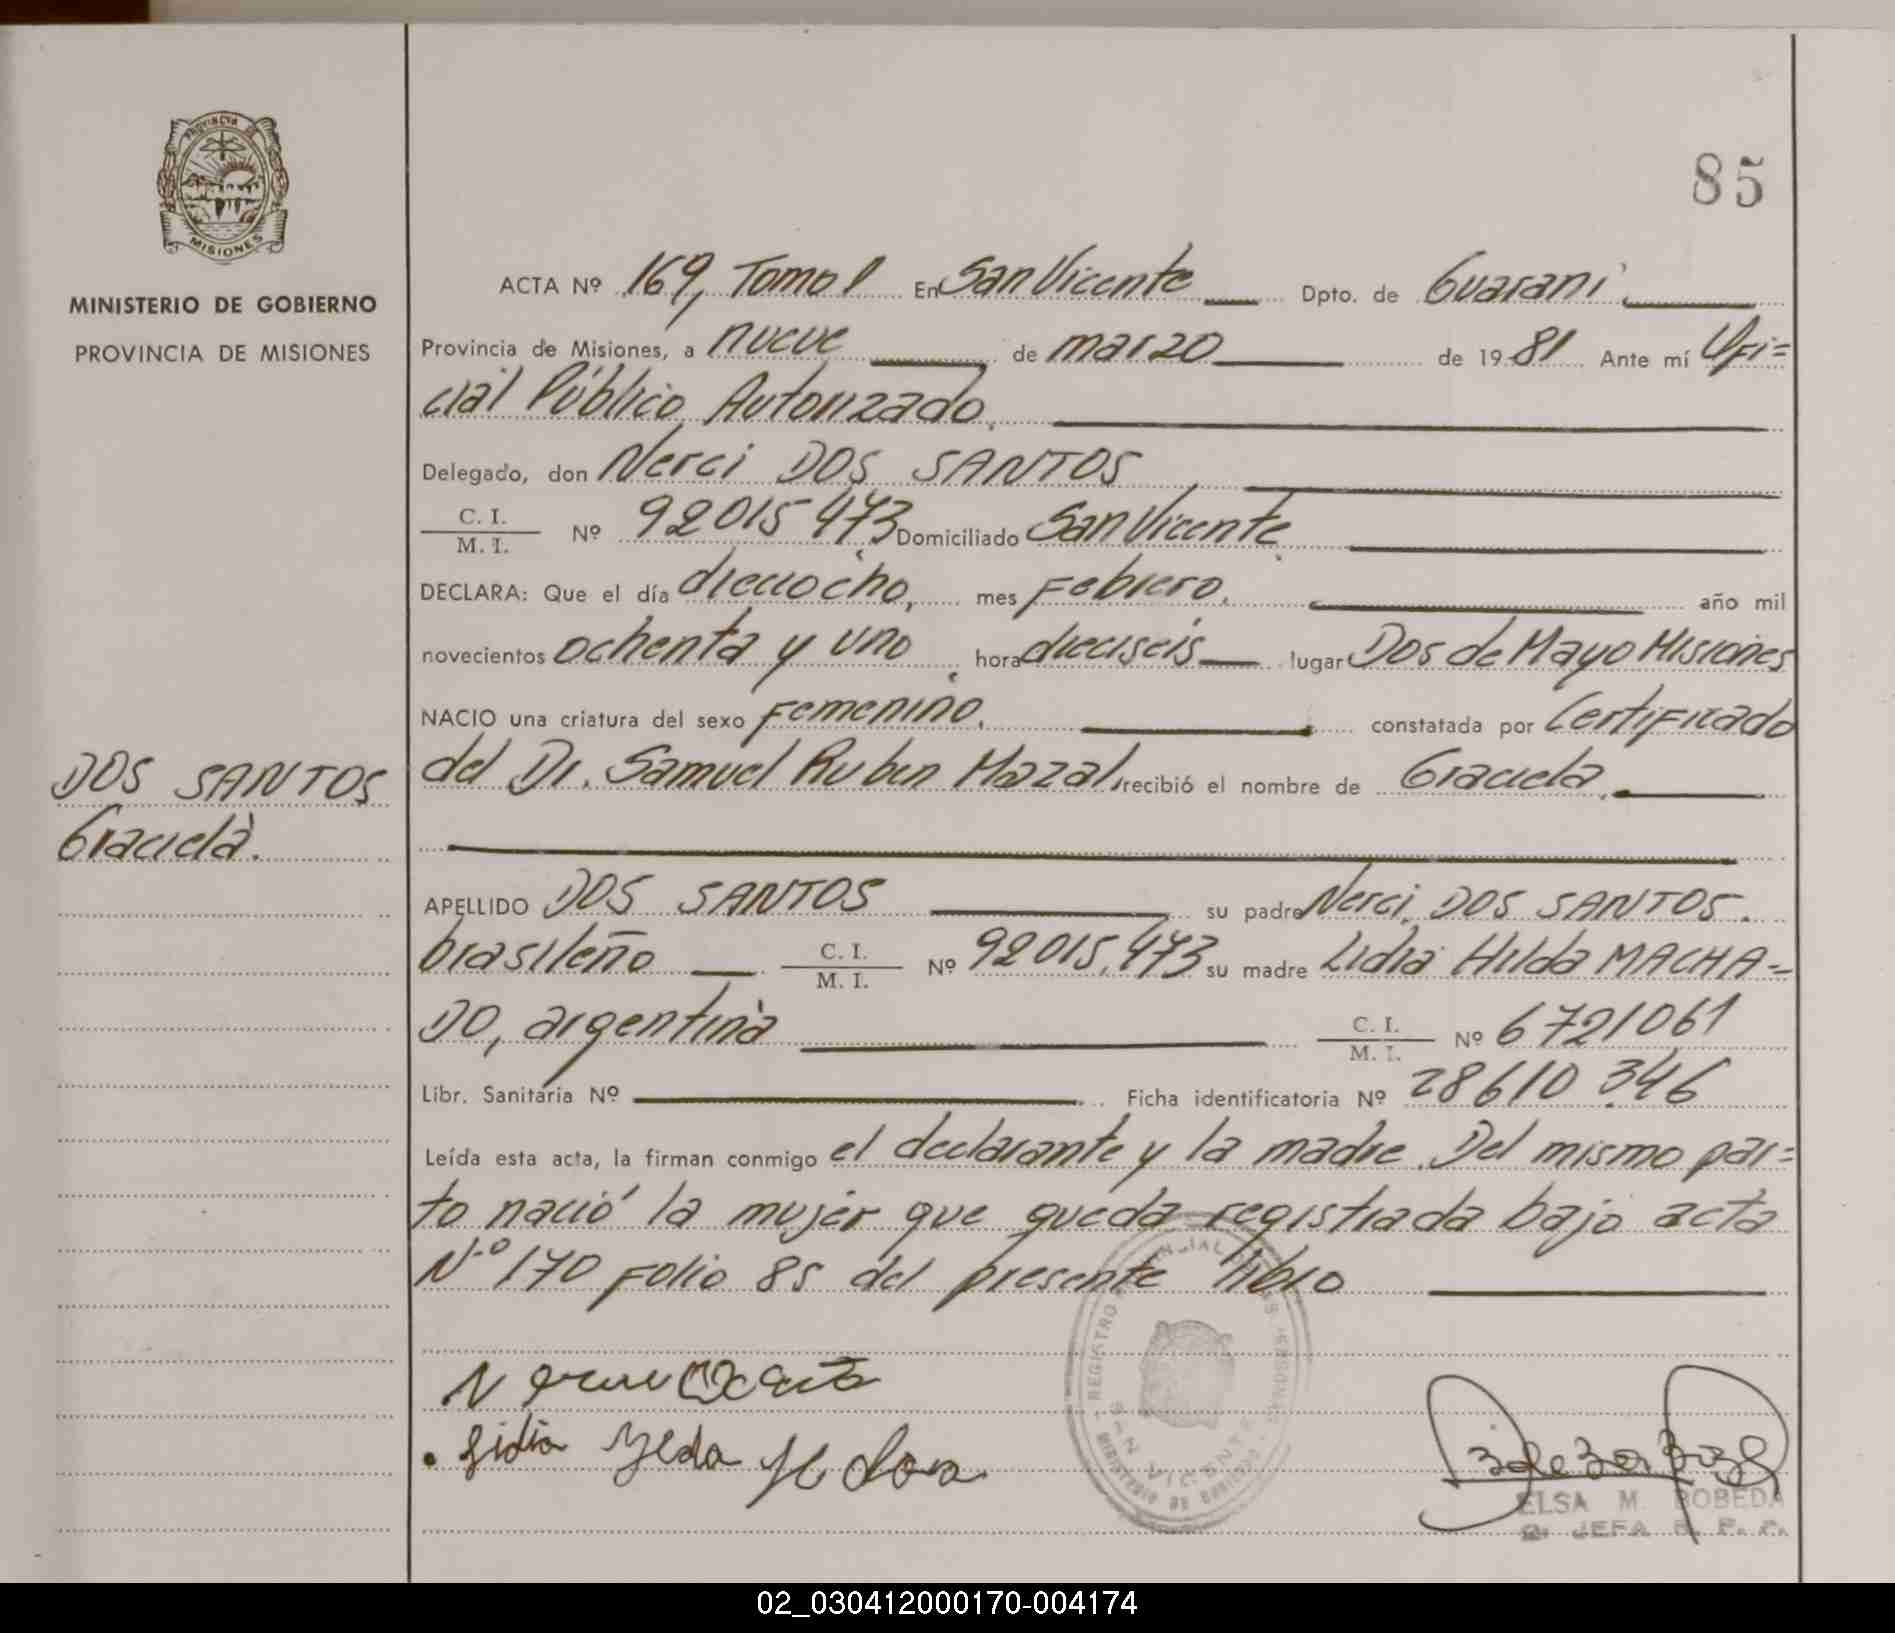 85
PROVINCIA DE
MISIONES
MINISTERIO DE GOBIERNO
PROVINCIA DE MISIONES
ACTA Nº 169, Tomo I En San Vicente Dpto. de Guaraní
Provincia de Misiones, a nueve de marzo de 1981 Ante mí Ofi=
cial Público Autorizado.
Delegado, don Nerci DOS SANTOS
C. I. / M. I. Nº 92015473 Domiciliado San Vicente.
DECLARA: Que el día dieciocho, mes Febrero, año mil
novecientos ochenta y uno, hora dieciseis lugar Dos de Mayo Misiones
NACIO una criatura del sexo Femenino, constatada por Certificado
del Dr. Samuel Ruben Mazal, recibió el nombre de Graciela.
DOS SANTOS
Graciela.
APELLIDO DOS SANTOS su padre Nerci DOS SANTOS.
brasileño C. I. / M. I. Nº 92015.473 su madre Lidia Hilda MACHA=
DO, argentina C. I. / M. I. Nº 6721061
Libr. Sanitaria Nº Ficha identificatoria Nº 28610.346
Leída esta acta, la firman conmigo el declarante y la madre. Del mismo par=
to nació la mujer que queda registrada bajo acta
Nº 170 Folio 85 del presente libro
REGISTRO PROVINCIAL DE LAS PERSONAS
SAN VICENTE
MINISTERIO DE GOBIERNO
Lidia
ELSA M. BOBEDA
JEFA R. P. P.
02_030412000170-004174